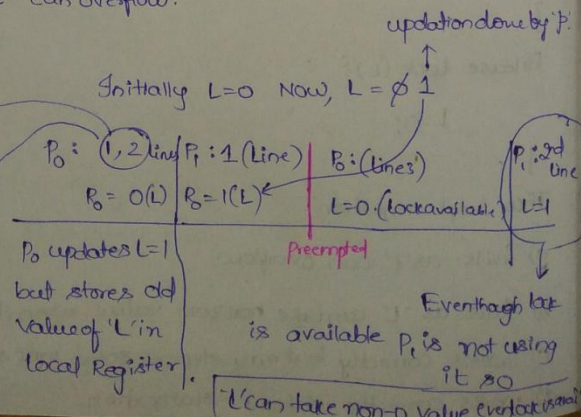 can overflow.
updation done by P.
Initially L=0 Now, L = 0 1
P0 : 1, 2 lines P1 : 1 (Line) P0 : (Lines) P1 : 2nd Line
R0 = 0(L) R0 = 1(L) L=0. (Lock available) L=1
Preempted
P0 updates L=1
but stores old
value of 'L' in
local Register.
Eventhough lock
is available P1 is not using
it so
'L' can take non-0 value even lock is avai